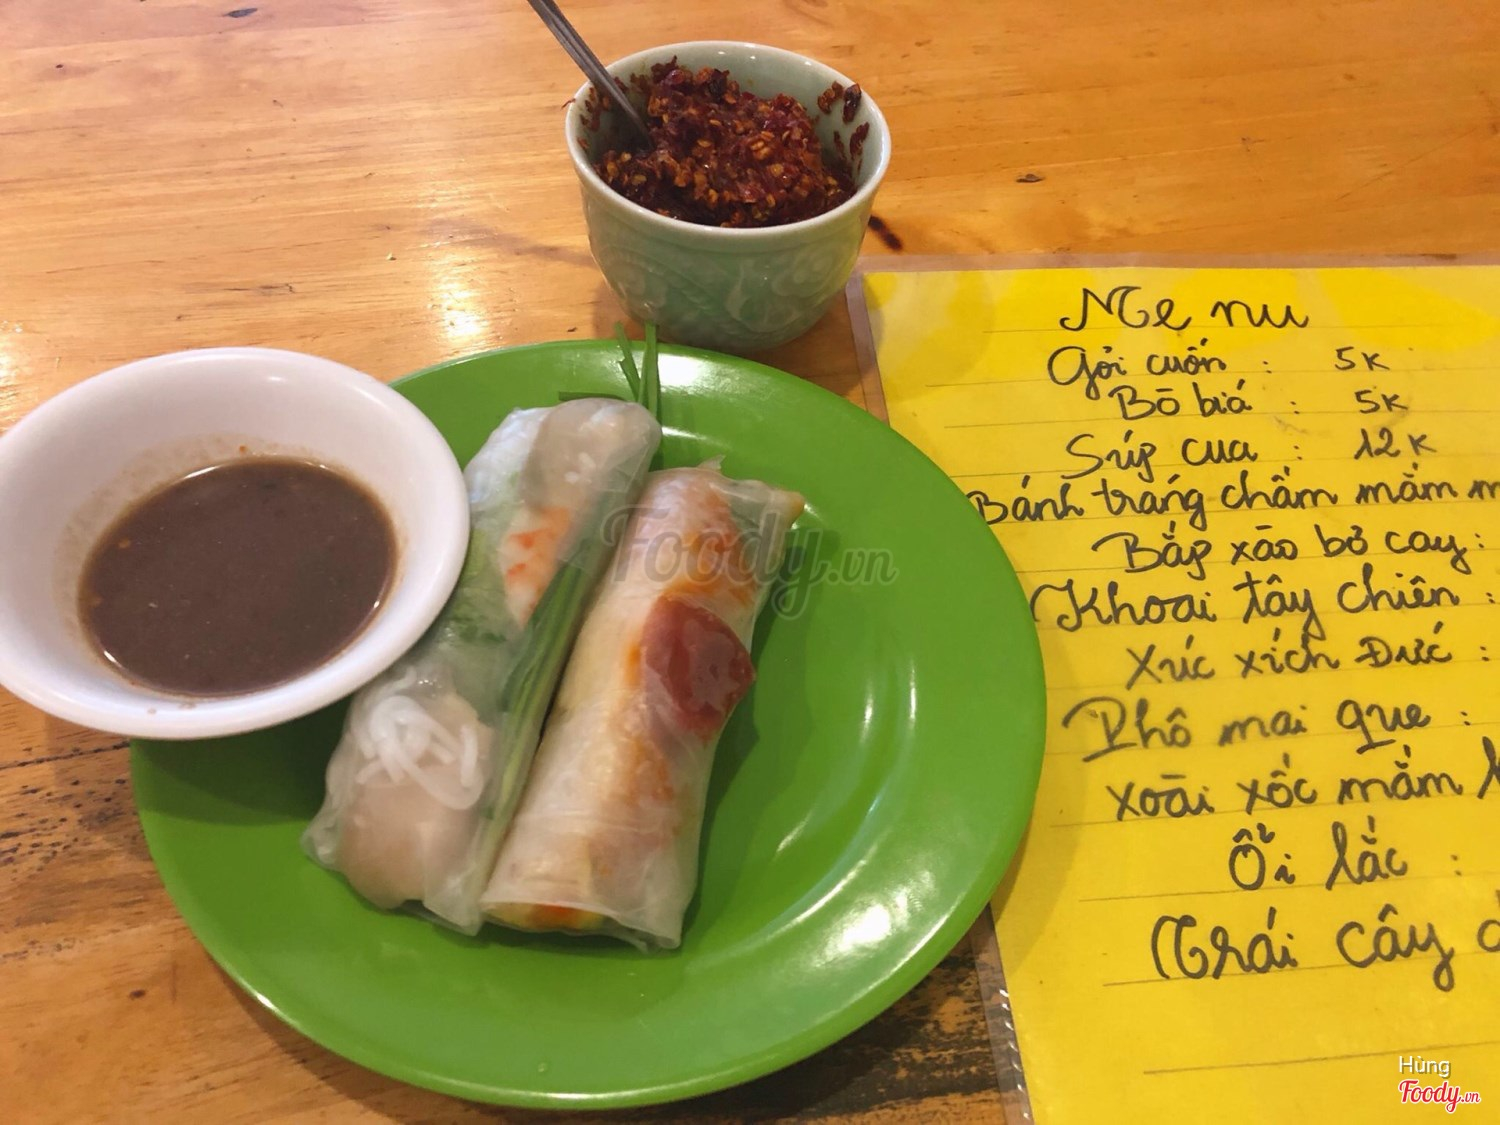 Me nu
Gỏi cuốn : 5k
Bò bía : 5k
Súp cua : 12k
Bánh tráng chấm mắm
Bắp xào bơ cay :
Khoai tây chiên :
Xúc xích Đức :
Phô mai que :
Xoài xốc mắm
Ổi lắc :
Trái cây
Foody.vn
Hùng
Foody.vn